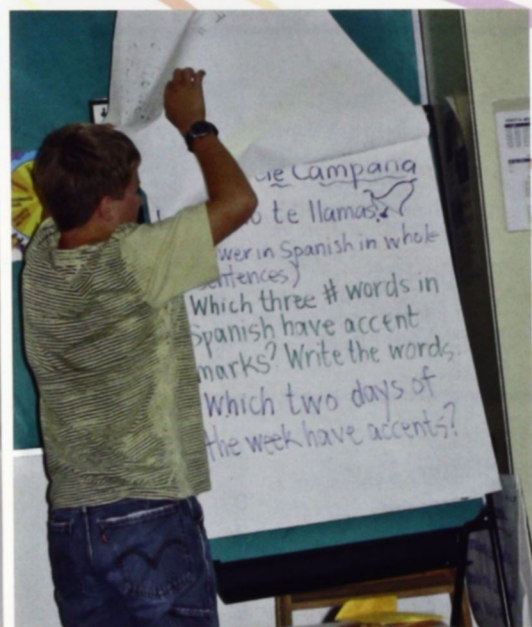 de Campana
te llamas?
wer in Spanish in whole
entences)
Which three # words in
Spanish have accent
marks? Write the words.
Which two days of
the week have accents?